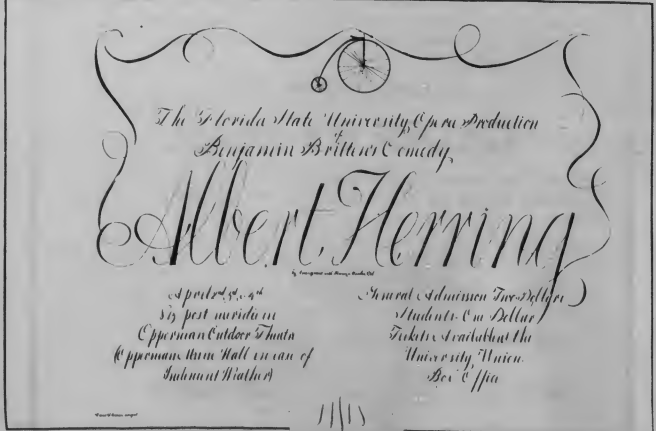 The Florida State University Opera Production
of
Benjamin Britten's Comedy
Albert Herring
by arrangement with Boosey & Hawkes Ltd
April 2nd, 3rd, & 4th
Six post meridiem
Opperman Outdoor Theatre
(Opperman Music Hall in case of
Inclement Weather)
General Admission Two Dollars
Students One Dollar
Tickets Available at the
University Union
Box Office